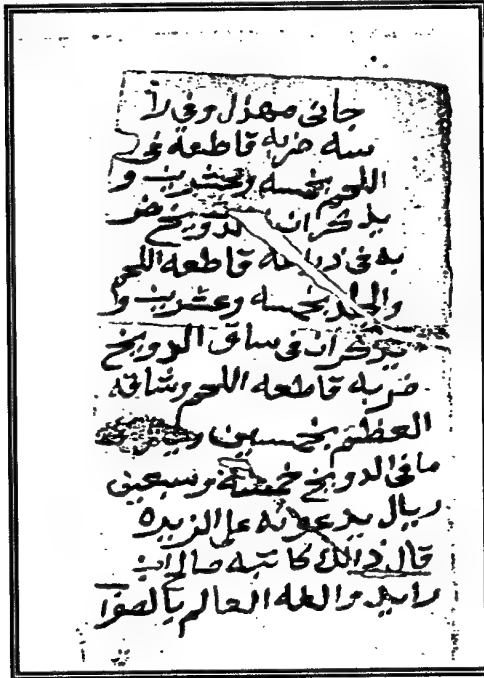 جانى مهذل وفي رأ
سه ضربه قاطعه في
اللحم بخمسه وعشرين و
يذكران الدويخ ضر
به في ذراعه قاطعه اللحم
والجلد بخمسه وعشرين و
يذكران في ساق الدويخ
ضربه قاطعه اللحم وشاقه
العظم بخمسين
ما في الدويخ خمسة وسبعين
ريال يدعونه على الزيره
قال ذالك كاتبه صالح ابن
رابد والله العالم بالصوا